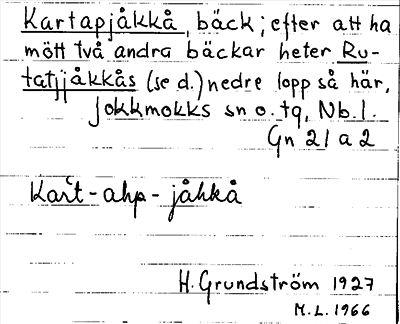 Kartapjåkkå, bäck; efter att ha
mött två andra bäckar heter Ru-
tatjjåkkås (se d.) nedre lopp så här,
Jokkmokks sn o. tg, Nb.l.
Gn 21 a 2
Kart-ahp-jåhkå
H. Grundström 1927
M.L. 1966